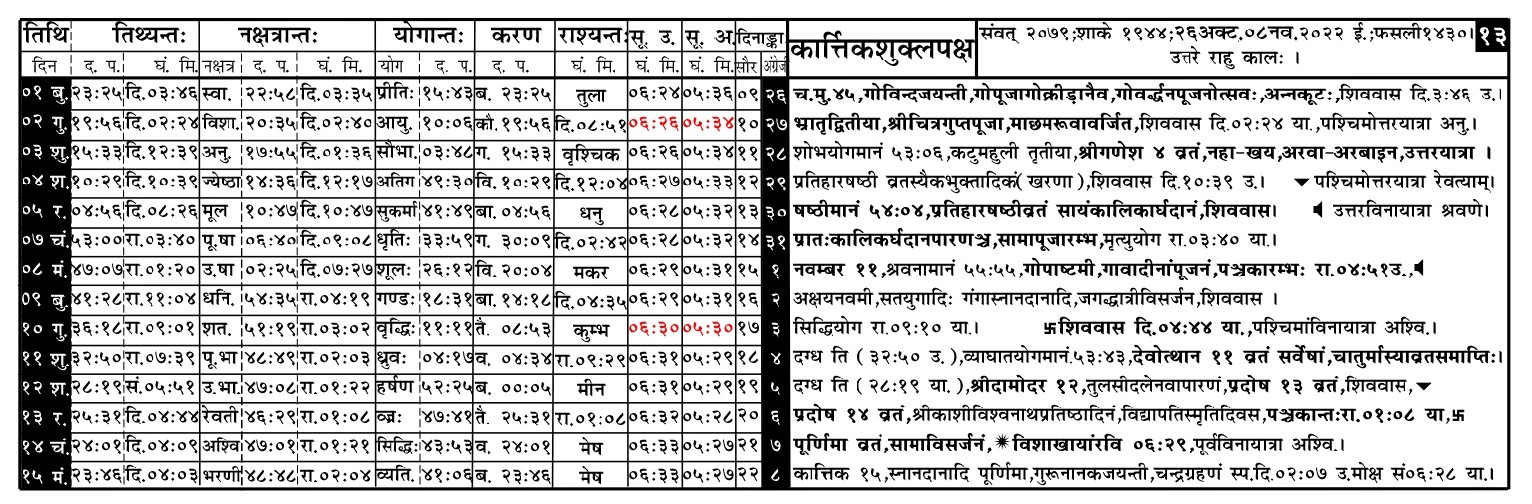 तिथि तिथ्यन्तः नक्षत्रान्तः योगान्तः करण राश्यन्तः सू. उ. सू. अ. दिनाङ्का कार्त्तिकशुक्लपक्ष संवत् २०७९;शाके १९४४;२६अक्ट.०८नव.२०२२ ई.;फसली१४३०। १३
दिन द. प. घं. मि. नक्षत्र द. प. घं. मि. योग द. प. द. प. घं. मि. घं. मि. घं. मि. सौर अंग्रेजी उत्तरे राहु कालः ।
०१ बु. २३:२५ दि.०३:४६ स्वा. २२:५८ दि.०३:३५ प्रीतिः १५:४३ ब. २३:२५ तुला ०६:२४ ०५:३६ ०९ २६ च.मु.४५,गोविन्दजयन्ती,गोपूजागोक्रीड़ानैव,गोवर्द्धनपूजनोत्सवः,अन्नकूटः,शिववास दि.३:४६ उ.।
०२ गु. १९:५६ दि.०२:२४ विशा. २०:३५ दि.०२:४० आयु. १०:०६ कौ. १९:५६ दि.०८:५१ ०६:२६ ०५:३४ १० २७ भ्रातृद्वितीया,श्रीचित्रगुप्तपूजा,माछमरूवावर्जित,शिववास दि.०२:२४ या.,पश्चिमोत्तरयात्रा अनु.।
०३ शु. १५:३३ दि.१२:३९ अनु. १७:५५ दि.०१:३६ सौभा. ०३:४८ ग. १५:३३ वृश्चिक ०६:२६ ०५:३४ ११ २८ शोभयोगमानं ५३:०६,कटुमहुली तृतीया,श्रीगणेश ४ व्रतं,नहा-खय,अरवा-अरबाइन,उत्तरयात्रा ।
०४ श. १०:२९ दि.१०:३९ ज्येष्ठा १४:३६ दि.१२:१७ अतिग ४९:३० वि. १०:२९ दि.१२:०४ ०६:२७ ०५:३३ १२ २९ प्रतिहारषष्ठी व्रतस्यैकभुक्तादिकं(खरणा),शिववास दि.१०:३९ उ.। ▼पश्चिमोत्तरयात्रा रेवत्याम्।
०५ र. ०४:५६ दि.०८:२६ मूल १०:४७ दि.१०:४७ सुकर्मा ४१:४९ बा. ०४:५६ धनु ०६:२८ ०५:३२ १३ ३० षष्ठीमानं ५४:०४,प्रतिहारषष्ठीव्रतं सायंकालिकार्घदानं,शिववास। ◀ उत्तरविनायात्रा श्रवणे।
०७ चं. ५३:०० रा.०३:४० पू.षा ०६:४० दि.०९:०८ धृतिः ३३:५९ ग. ३०:०९ दि.०२:४२ ०६:२८ ०५:३२ १४ ३१ प्रातःकालिकर्घदानपारणञ्च,सामापूजारम्भ,मृत्युयोग रा.०३:४० या.।
०८ मं. ४७:०७ रा.०१:२० उ.षा ०२:२५ दि.०७:२७ शूलः २६:१२ वि. २०:०४ मकर ०६:२९ ०५:३१ १५ १ नवम्बर ११,श्रवनामानं ५५:५५,गोपाष्टमी,गावादीनांपूजनं,पञ्चकारम्भः रा.०४:५१उ.,◀
०९ बु. ४१:२८ रा.११:०४ धनि. ५४:३५ रा.०४:१९ गण्डः १८:३१ बा. १४:१८ दि.०४:३५ ०६:२९ ०५:३१ १६ २ अक्षयनवमी,सतयुगादिः गंगास्नानदानादि,जगद्धात्रीविसर्जन,शिववास ।
१० गु. ३६:१८ रा.०९:०१ शत. ५१:१९ रा.०३:०२ वृद्धिः ११:११ तै. ०८:५३ कुम्भ ०६:३० ०५:३० १७ ३ सिद्धियोग रा.०९:१० या.। 卐शिववास दि.०४:४४ या.,पश्चिमांविनायात्रा अश्वि.।
११ शु. ३२:५० रा.०७:३९ पू.भा ४८:४९ रा.०२:०३ ध्रुवः ०४:१७ व. ०४:३४ रा.०९:२९ ०६:३१ ०५:२९ १८ ४ दग्ध ति (३२:५० उ.),व्याघातयोगमानं.५३:४३,देवोत्थान ११ व्रतं सर्वेषां,चातुर्मास्याव्रतसमाप्तिः।
१२ श. २८:१९ सं.०५:५१ उ.भा. ४७:०८ रा.०१:२२ हर्षण ५२:२५ ब. ००:०५ मीन ०६:३१ ०५:२९ १९ ५ दग्ध ति (२८:१९ या.),श्रीदामोदर १२,तुलसीदलेनवापारणं,प्रदोष १३ व्रतं,शिववास,▼
१३ र. २५:३१ दि.०४:४४ रेवती ४६:२९ रा.०१:०८ व्ज्रः ४७:४१ तै. २५:३१ रा.०१:०८ ०६:३२ ०५:२८ २० ६ प्रदोष १४ व्रतं,श्रीकाशीविश्वनाथप्रतिष्ठादिनं,विद्यापतिस्मृतिदिवस,पञ्चकान्तःरा.०१:०८ या,卐
१४ चं. २४:०१ दि.०४:०९ अश्वि ४७:०१ रा.०१:२१ सिद्धिः ४३:५३ व. २४:०१ मेष ०६:३३ ०५:२७ २१ ७ पूर्णिमा व्रतं,सामाविसर्जनं,✷विशाखायांरवि ०६:२९,पूर्वविनायात्रा अश्वि.।
१५ मं. २३:४६ दि.०४:०३ भरणी ४८:४८ रा.०२:०४ व्यति. ४१:०६ ब. २३:४६ मेष ०६:३३ ०५:२७ २२ ८ कात्तिक १५,स्नानदानादि पूर्णिमा,गुरूनानकजयन्ती,चन्द्रग्रहणं स्प.दि.०२:०७ उ.मोक्ष सं०६:२८ या.।